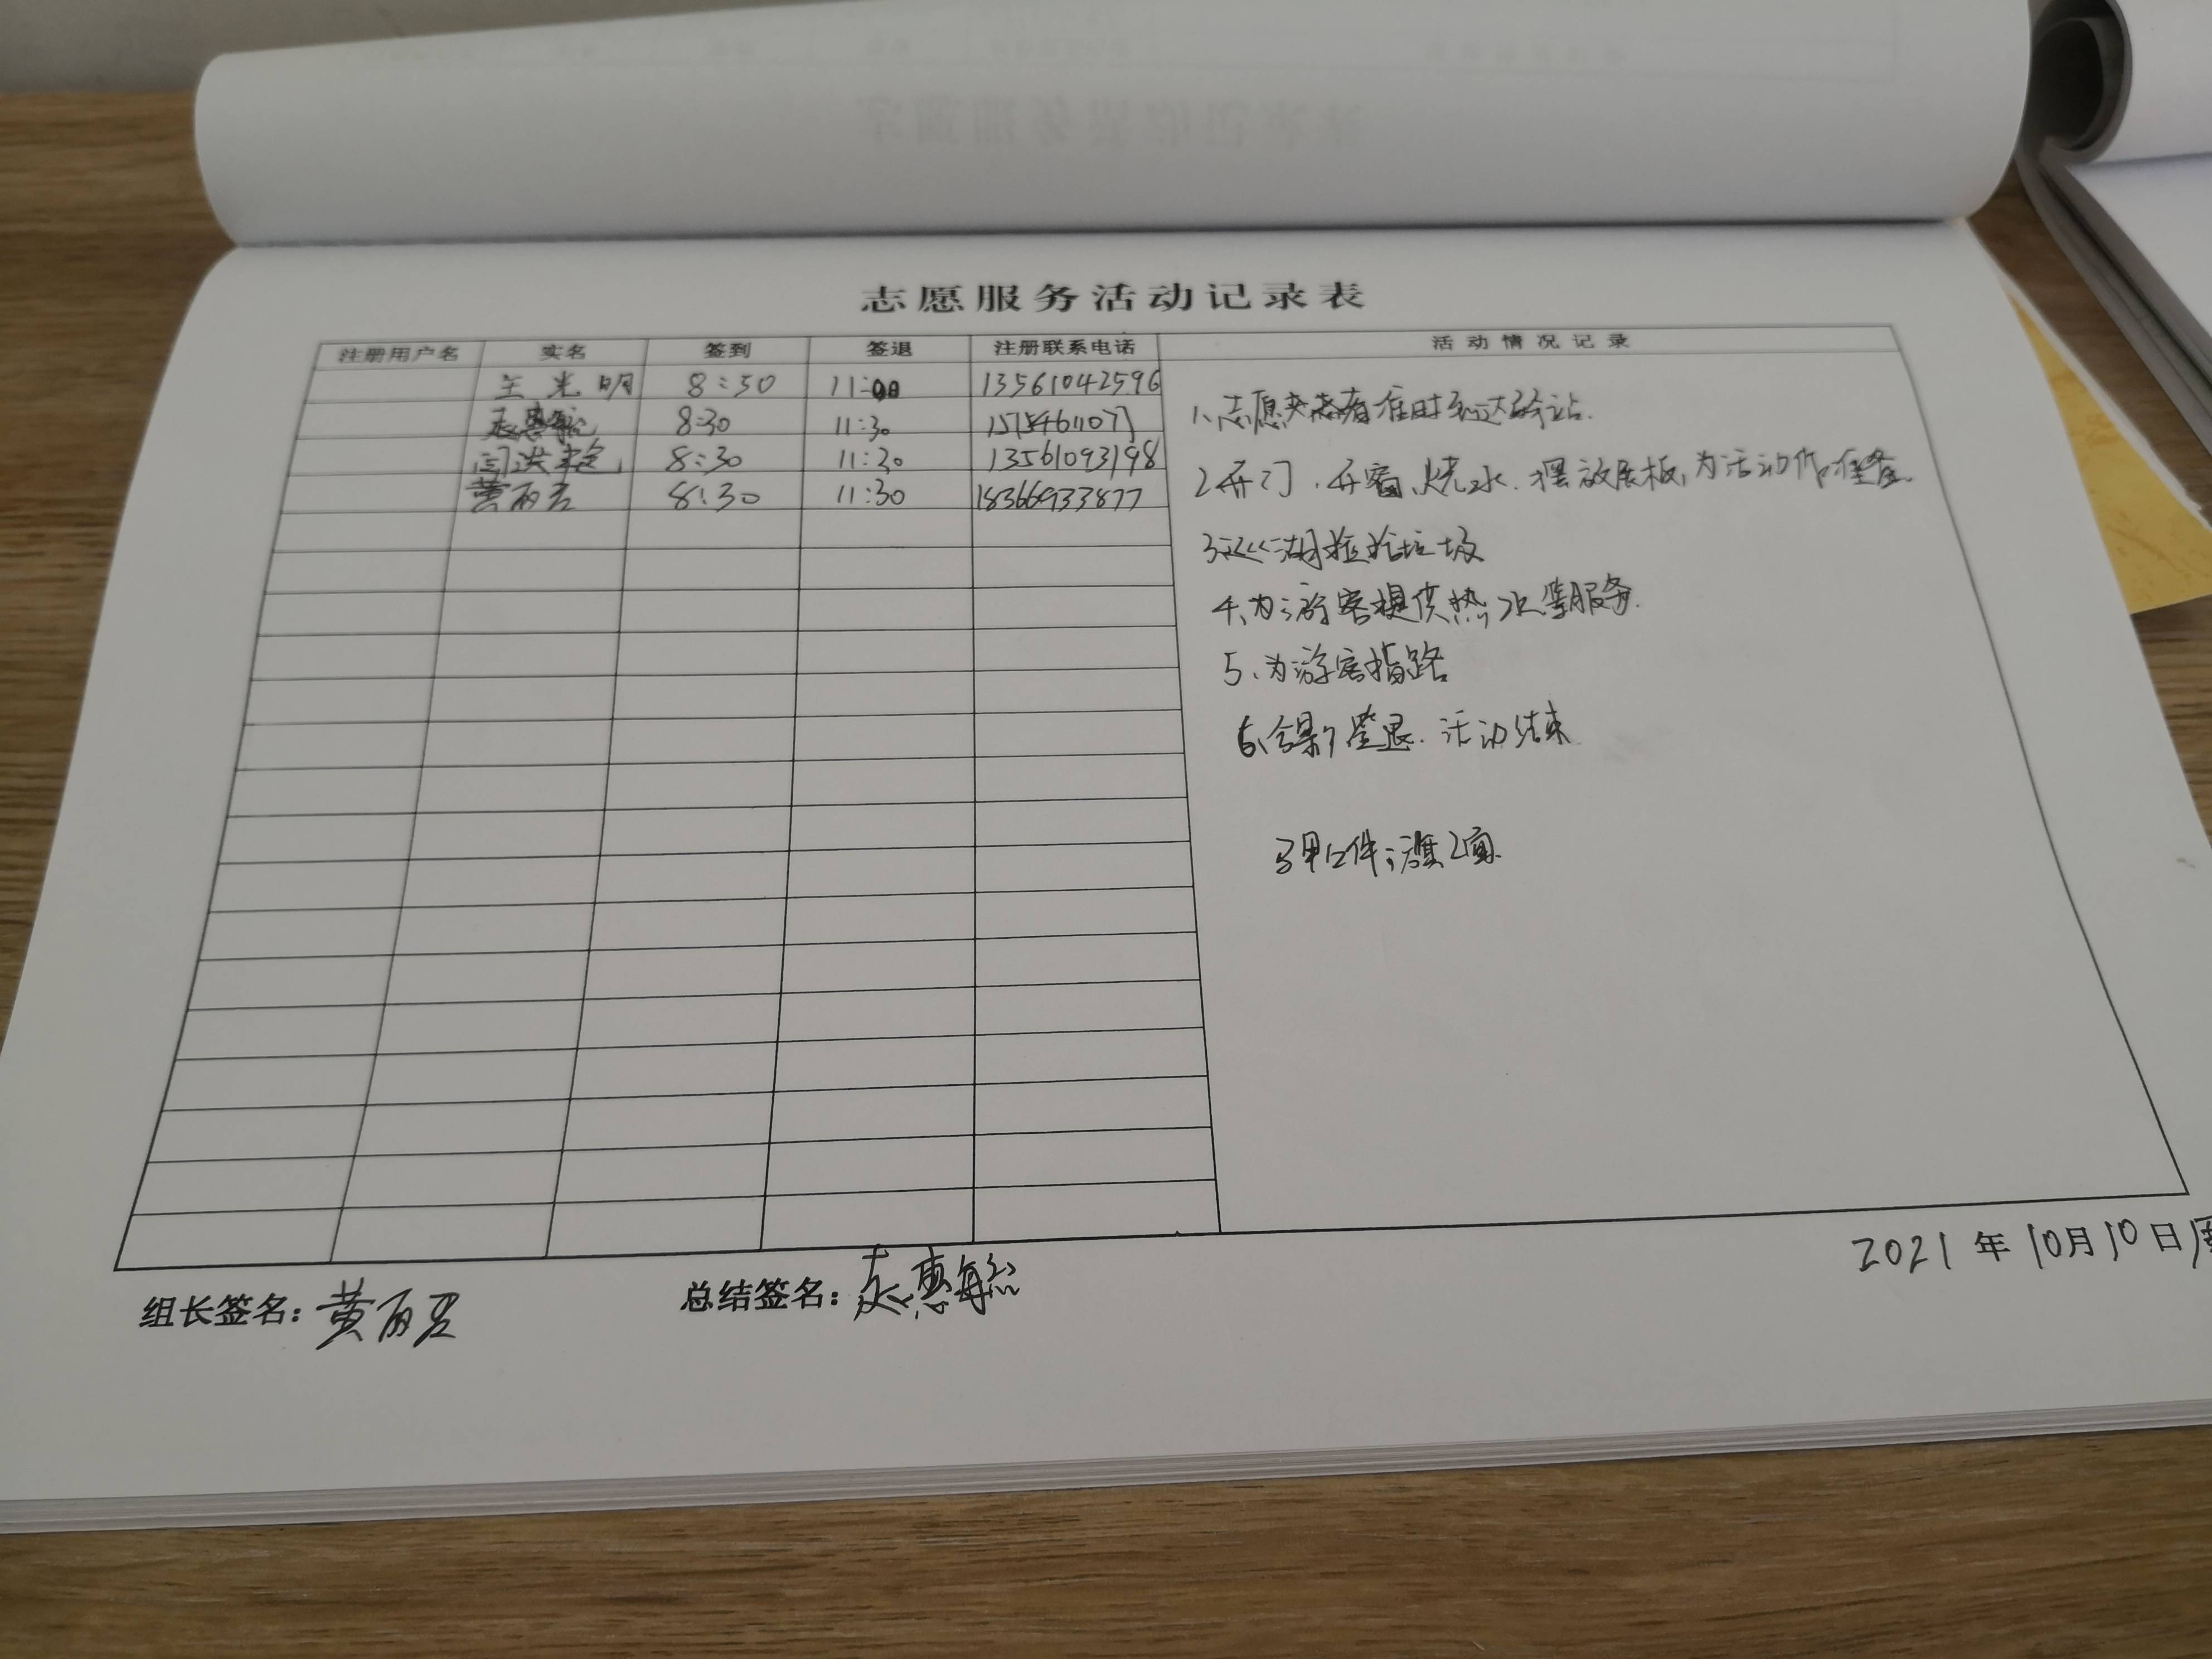 志愿服务活动记录表
注册用户名 实名 签到 签退 注册联系电话 活动情况记录
王光明 8:30 11:00 13561042596
8:30 11:30
闫洪 8:30 11:30 13561093198
黄丽君 8:30 11:30 18366933877
1、志愿者准时到达驿站.
2、开门、开窗、烧水、摆放展板,为活动作准备.
3、巡湖捡拾垃圾
4、为游客提供热水等服务.
5、为游客指路
6、合影签退.活动结束
马甲2件;旗2面.
组长签名:黄丽君
总结签名:赵惠敏
2021年10月10日